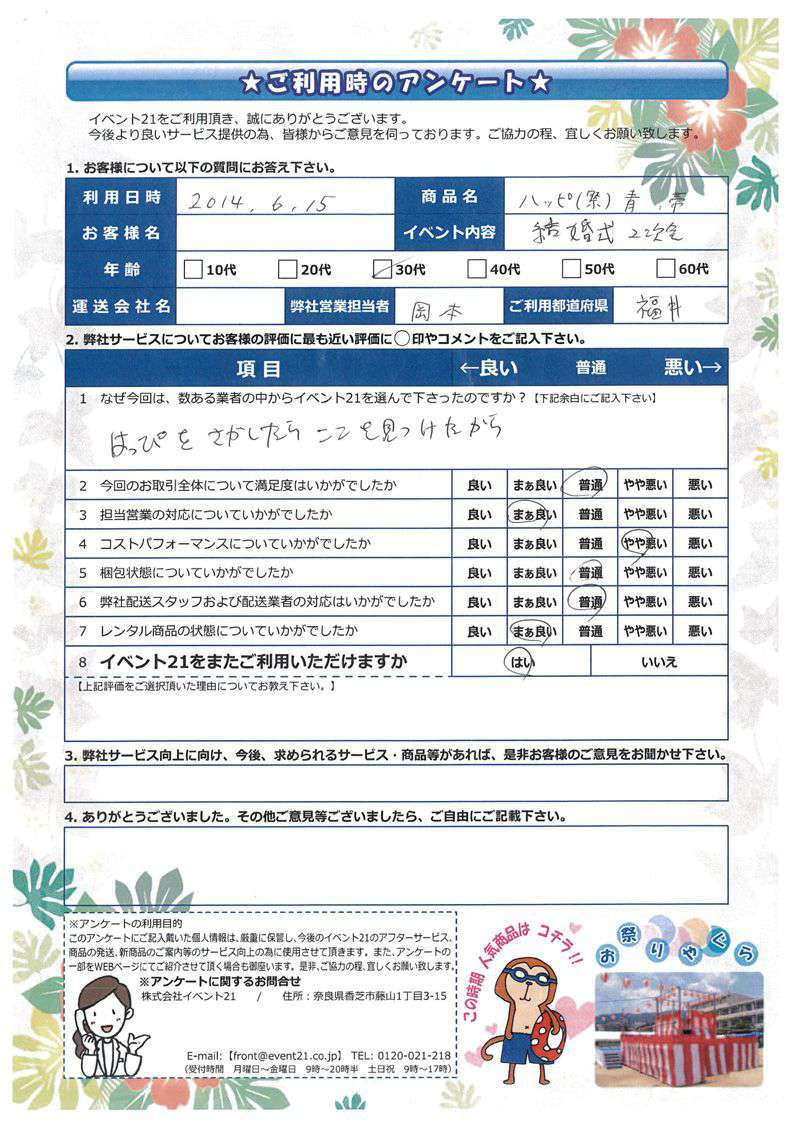 ★ご利用時のアンケート★
イベント21をご利用頂き、誠にありがとうございます。
今後より良いサービス提供の為、皆様からご意見を伺っております。ご協力の程、宜しくお願い致します。
1. お客様について以下の質問にお答え下さい。
利用日時 2014.6.15 商品名 ハッピ(祭)青、帯
お客様名 イベント内容 結婚式 2次会
年齢 10代 20代 30代 40代 50代 60代
運送会社名 弊社営業担当者 岡本 ご利用都道府県 福井
2. 弊社サービスについてお客様の評価に最も近い評価に○印やコメントをご記入下さい。
項目 ←良い 普通 悪い→
1 なぜ今回は、数ある業者の中からイベント21を選んで下さったのですか?【下記余白にご記入下さい】
はっぴをさがしたらここを見つけたから
2 今回のお取引全体について満足度はいかがでしたか 良い まぁ良い 普通 やや悪い 悪い
3 担当営業の対応についていかがでしたか 良い まぁ良い 普通 やや悪い 悪い
4 コストパフォーマンスについていかがでしたか 良い まぁ良い 普通 やや悪い 悪い
5 梱包状態についていかがでしたか 良い まぁ良い 普通 やや悪い 悪い
6 弊社配送スタッフおよび配送業者の対応はいかがでしたか 良い まぁ良い 普通 やや悪い 悪い
7 レンタル商品の状態についていかがでしたか 良い まぁ良い 普通 やや悪い 悪い
8 イベント21をまたご利用いただけますか はい いいえ
【上記評価をご選択頂いた理由についてお教え下さい。】
3. 弊社サービス向上に向け、今後、求められるサービス・商品等があれば、是非お客様のご意見をお聞かせ下さい。
4. ありがとうございました。その他ご意見等ございましたら、ご自由にご記載下さい。
※アンケートの利用目的
このアンケートにご記入戴いた個人情報は、厳重に保管し、今後のイベント21のアフターサービス、
商品の発送、新商品のご案内等のサービス向上の為に使用させて頂きます。また、アンケートの
一部をWEBページにてご紹介させて頂く場合も御座います。是非、ご協力の程、宜しくお願い致します。
※アンケートに関するお問合せ
株式会社イベント21 / 住所:奈良県香芝市藤山1丁目3-15
E-mail:【front@event21.co.jp】 TEL: 0120-021-218
(受付時間 月曜日～金曜日 9時～20時半 土日祝 9時～17時)
この時期人気商品はコチラ!!
お祭りやぐら